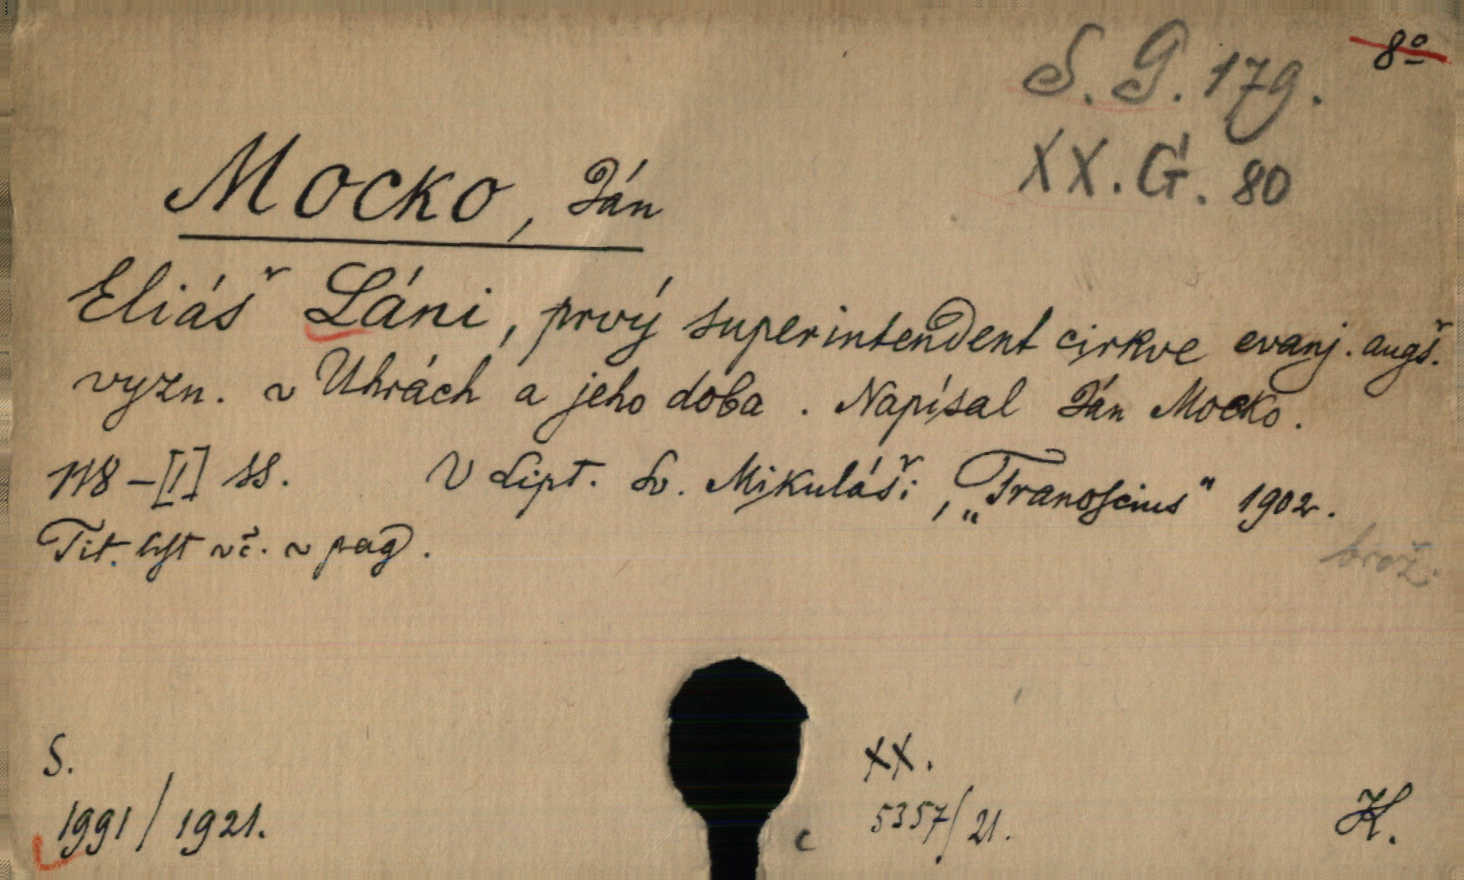 8º
S. G. 179.
XX. G. 80
Mocko, Ján
Eliáš Láni, prvý superintendent cirkve evanj. augš.
vyzn. v Uhrách a jeho doba. Napísal Ján Mocko.
118 – [I] ss. V Lipt. Sv. Mikuláši, „Tranoscius" 1902.
Tit. list vč. v pag.
brož.
S. XX.
1991/1921. c 5357/21. K.